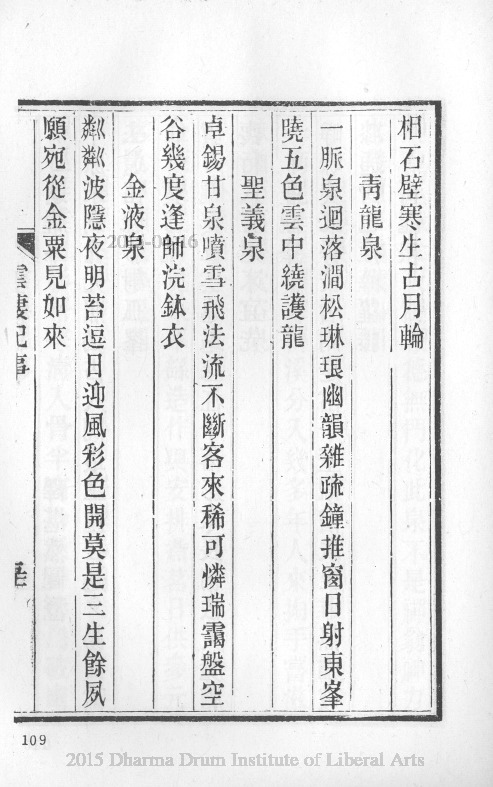 相石壁寒生古月輪
青龍泉
一脈泉迴落澗松琳琅幽韻雜疏鐘推窗日射東峯
曉五色雲中繞護龍
聖義泉
卓錫甘泉噴雪飛法流不斷客來稀可憐瑞靄盤空
谷幾度逢師浣鉢衣
金液泉
粼粼波隱夜明苔逗日迎風彩色開莫是三生餘夙
願宛從金粟見如來
雲棲紀事
109
2015 Dharma Drum Institute of Liberal Arts